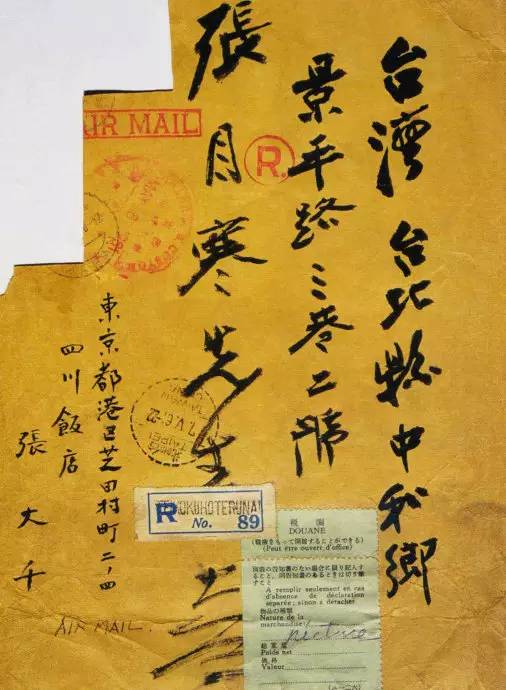 台灣 台北縣中和鄉
景平路三巷二號
張目寒先生
AIR MAIL
R.
東京都港区芝田村町二ノ四
四川飯店
張大千
AIR MAIL.
R
No. 89
税関
DOUANE
(Peut être ouvert d'office)
A remplir seulement en cas
d'absence de déclaration
séparée; sinon à détacher
物品の種類
Nature de la
marchandise picture
総重量
Poids net
価格
Valeur